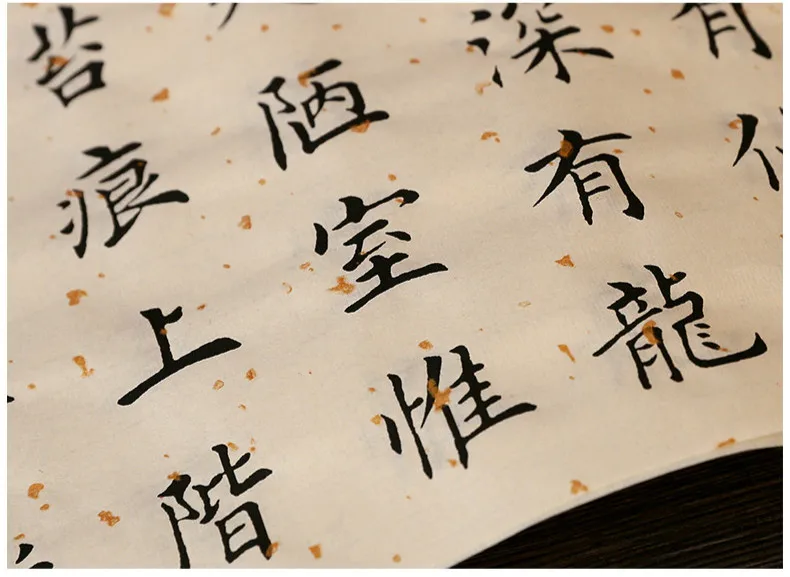 有
深有龍
陋室惟
苔痕上階